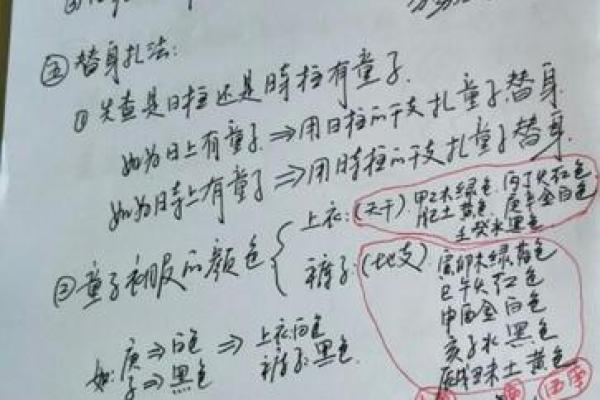 ㊄ 替身扎法:
① 先查是日柱还是时柱有童子.
如为日上有童子. ⇒ 用日柱的干支扎童子替身.
如为时上有童子 ⇒ 用时柱的干支扎童子替身.
② 童子衣服的颜色
上衣: (天干). 甲乙木绿色. 丙丁火红色
戊己土黄色. 庚辛金白色
壬癸水黑色
裤子: (地支). 寅卯木绿色
巳午火红色
申酉金白色
亥子水黑色
土黄色
如: 庚 ⇒ 白色 ⇒ 上衣白色
子 ⇒ 黑色 裤子: 黑色.